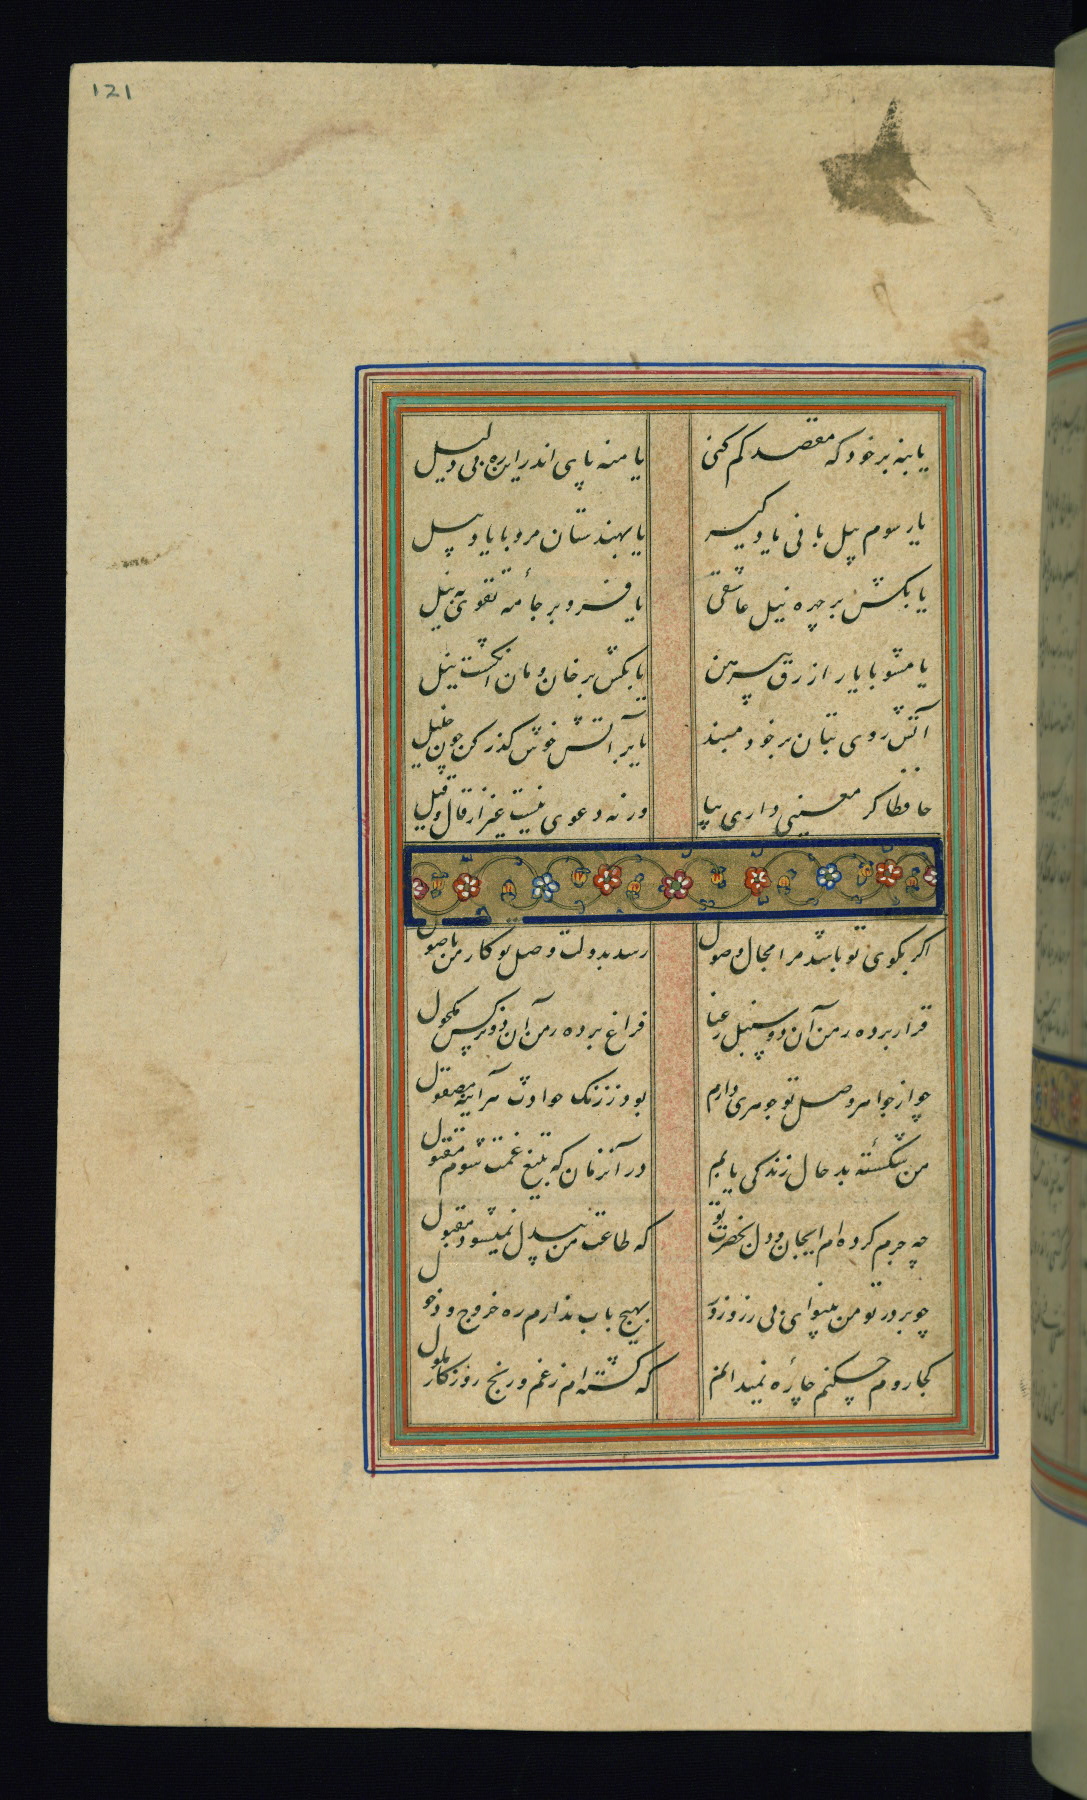 121
یا بنه بر خود که مقصد کم کنی
یا منه پای اندرین ره بی دلیل
یا رسوم پیل بانی یاد کیر
یا بهندستان مرو با یاد پیل
یا بکش بر چهره نیل عاشقی
یا فرو بر جامهٔ تقوی به نیل
یا مشو با یار ازرق پیرهن
یا بکش بر خان و مان انکشت نیل
آتش روی بتان بر خود مبند
یا بر آتش خوش کذر کن چون خلیل
حافظا کر معنیی داری بیا
ورنه دعوی نیست غیر از قال و قیل
اکر بکوی تو باشد مرا مجال وصول
رسد بدولت وصل تو کار من باصول
قرار برده ز من آن دو سنبل رعنا
فراغ برده ز من آن دو نرکس مکحول
چو از جواهر وصل تو جوهری دارم
بود ز زنک حوادث هر آینه مصقول
من شکستهٔ بد حال زندکی یابم
در آن زمان که بتیغ غمت شوم مقتول
چه جرم کرده‌ام ایجان و دل بحضرت تو
که طاعت من بیدل نمیشود مقبول
چو بر در تو من بینوای بی زر و زور
بهیچ باب ندارم ره خروج و دخول
کجا روم چکنم چارهٔ نمیدانم
که کشته‌ام ز غم و رنج روزکار ملول